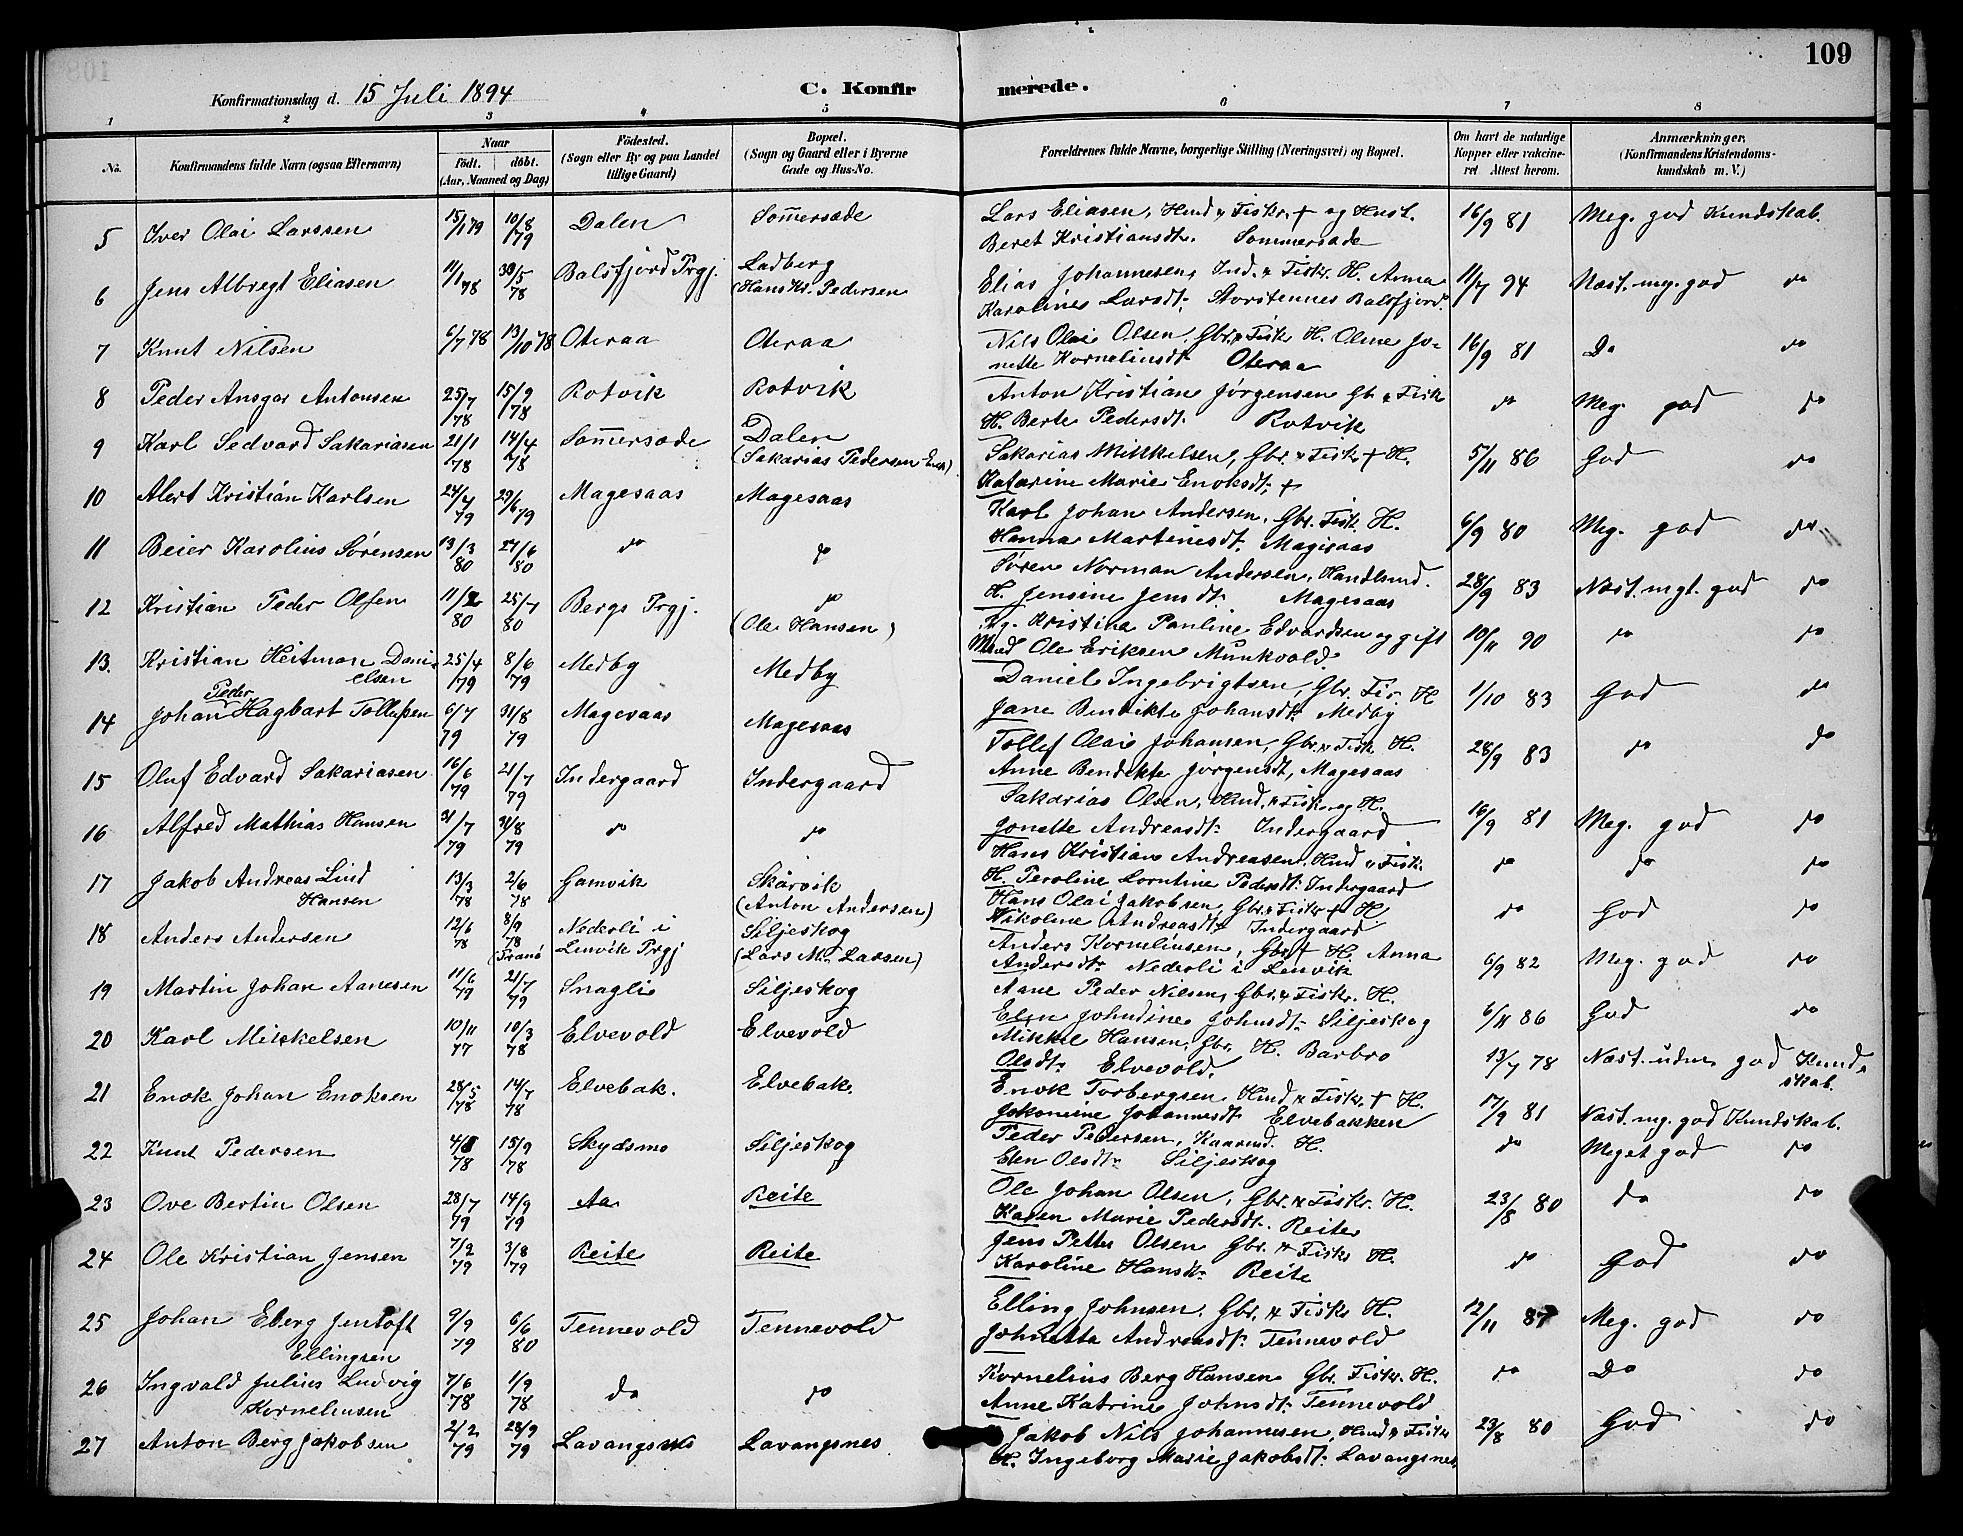 109
Konfirmationsdag d. 15 Juli 1894 C. Konfirmerede.
1 2 3 4 5 6 7 8
No. Konfirmandens fulde Navn (ogsaa Efternavn) Naar født. døbt. (Aar, Maaned og Dag) Fødested. (Sogn eller By og paa Landet tillige Gaard) Bopæl. (Sogn og Gaard eller i Byerne Gade og Hus-No. Forældrenes fulde Navne, borgerlige Stilling (Næringsvei) og Bopæl. Om havt de naturlige Kopper eller vakcineret. Attest herom. Anmærkninger, (Konfirmandens Kristendomskundskab m. V.)
5 Iver Olai Larssen 15/1 79 10/8 79 Dalen Sommersæde Lars Eliasen, Hmd & Fiskr. + og Hust. 16/9 81 Meg. god Kundskab.
Beret Kristiansdtr. Sommersæde
6 Jens Albregt Eliasen 11/1 78 30/5 78 Balsfjord Prgj. Ladberg (Hans Kr. Pedersen Elias Johannesen, Ind. & Fiskr. H. Anna 11/7 94 Næst. mg. god do
Karoline Larsdtr. Storstennes Balsfjord
7 Knut Nilsen 6/7 78 13/10 78 Oteraa Oteraa Nils Olai Olsen, Gbr. & Fiskr H. Oline Jo- 16/9 81 Do do
nette Kornelinsdtr Oteraa
8 Peder Ansgar Antonsen 25/7 78 15/9 78 Rotvik Rotvik Anton Kristian Jørgensen Gb & Fisk do Meg. god do
H. Berte Pedersdt. Rotvik
9 Karl Sedvard Sakariasen 21/1 78 14/4 78 Sommersæde Dalen (Sakarias Pedersen Sakarias Mikkelsen, Gbr. & Fiskr + H. 5/11 86 God do
Katarine Marie Enoksdt. +
10 Alert Kristian Karlsen 24/4 79 29/6 79 Magesaas Magesaas Karl Johan Andersen, Gbr. Fisk. H. 6/9 80 Meg. god do
Hanna Martinesdt. Magesaas
11 Beier Karolius Sørensen 13/3 80 27/6 80 do do Søren Norman Andersen, Handlsmd. 28/9 83 Næst. mgt. god do
H. Jensine Jensdt. Magesaas
12 Kristian Peder Olsen 11/2 80 25/7 80 Bergs Prgj. do (Ole Hansen) Pg. Kristina Pauline Edvardsen og gift 10/11 90 do do
Mand Ole Eriksen Munkvold.
13. Kristian Heitman Dani- 25/4 79 8/6 79 Medby Medby Daniel Ingebrigtsen, Gbr. Fis. H 1/10 83 God do
elsen Jane Bendikte Johansdt. Medby
14 Johan Peder Hagbart Tollefsen 6/7 79 31/8 79 Magesaas Magesaas Tollef Olai Johansen, Gbr. & Fisk. H. 28/9 83 do do
Anne Bendikte Jørgensdt, Magesaas
15 Oluf Edvard Sakariasen 16/6 79 21/7 79 Indergaard Indergaard Sakarias Olsen, Hmd. & Fisk. og H. 16/9 81 Meg. god do
Jonette Andreasdtr Indergaard
16 Alfred Mathias Hansen 31/7 79 31/8 79 do do Hans Kristian Andreasen, Hmd & Fiskr. do do do
H. Peroline Lorntine Pedersdt. Indergaard
17 Jakob Andreas Lind 13/3 78 2/6 78 Gamvik Skårvik Hans Olai Jakobsen, Gbr. & Fiskr + H. do God do
Hansen (Anton Andersen) Nikoline Andreasdt Indergaard
18 Anders Andersen 12/6 78 8/9 78 (Tranø Nederli i Lenvik Prgj Siljeskog (Lars M. Larsen) Anders Korneliusen, Gbr + H. Anna 6/9 82 Meg. god do
Andersdtr Nederli i Lenvik
19 Martin Johan Aanesen 11/6 79 21/7 79 Snagli Siljeskog Aane Peder Nilsen, Gbr. & Fiskr. H. 6/11 86 God do
Elen Johndine Johnsdt. Siljeskog
20 Karl Mikkelsen 10/11 77 10/3 78 Elvevold Elvevold Mikkel Hansen, Gbr. H. Barbro 13/7 78 Næst. uden god Kund-
Olsdtr Elvevold. skab.
21 Enok Johan Enoksen 28/5 78 14/7 78 Elvebak. Elvebak. Enok Torbergsen Hmd & Fiskr. + H. 17/9 81 Næst. mg. god Kundskab.
Jokomine Johannesdt Elvebakken
22 Knut Pedersen 4/8 78 15/9 78 Skydsmo Siljeskog Peder Pedersen, Kaarmd. H. do Meget god do
Elen Olsdtr Siljeskog
23 Ove Bertin Olsen 28/7 79 14/9 79 Aa Reite Ole Johan Olsen, Gbr. & Fiskr. H. 23/8 80 do do
Karen Marie Pedersdt. Reite
24 Ole Kristian Jensen 7/2 79 3/8 79 Reite Reite Jens Petter Olsen Gbr. & Fiskr H. do God do
Karoline Hansdtr Reite
25 Johan Eberg Jentoft 9/9 79 6/6 80 Tennevold Tennevold Elling Johnsen. Gbr. & Fiskr H. 12/11 87 Meg. god do
Ellingsen Johnetta Andreasdt. Tennevold
26 Ingvald Julius Ludvig 7/6 78 1/9 78 do do Kornelius Berg Hansen Gbr. Fiskr. H. do Do do
Korneliusen Anne Katrine Johnsdt. Tennevold
27 Anton Berg Jakobsen 2/2 79 28/9 79 Lavangsnes Lavangsnes Jakob Nils Johannesen, Hmd & Fiskr 23/8 80 God do
H. Ingeborg Marie Jakobsdt. Lavangsnes